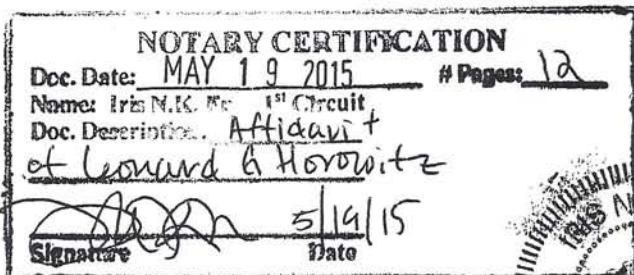 NOTARY CERTIFICATION
Doc. Date: MAY 19 2015 # Pages: 12
Name: Iris N.K. 1st Circuit
Doc. Description. Affidavit
of Leonard G Horowitz
5/19/15
Signature Date
IRIS N